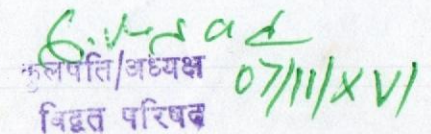 कुलपति/अध्यक्ष 07/11/XVI
विद्वत परिषद